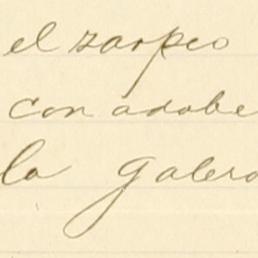 el zarpeo
con adobe
la galera